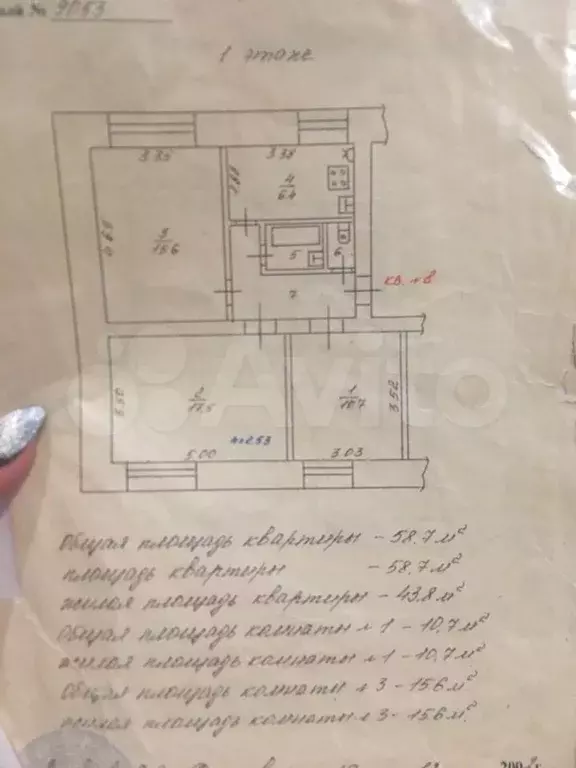 № 9053
1 этаже
3.35
3.38
1.88
4
6.4
4.65
3
15.6
5
6
7
кв. №8
3.50
2
17.5
1
10.7
3.52
h=2.53
5.00
3.03
Avito
общая площадь квартиры - 58.7 м²
площадь квартиры - 58.7 м²
жилая площадь квартиры - 43.8 м²
общая площадь комнаты №1 - 10.7 м²
жилая площадь комнаты №1 - 10.7 м²
общая площадь комнаты №3 - 15.6 м²
жилая площадь комнаты №3 - 15.6 м²